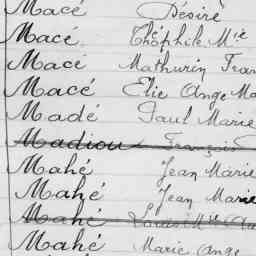 Macé Désiré
Macé Théophile Mie
Macé Mathurin Fran
Macé Elie Ange Ma
Madé Paul Marie
Madiou François
Mahé Jean Marie
Mahé Jean Marie
Mahé Louis Mie
Mahé Marie Ange